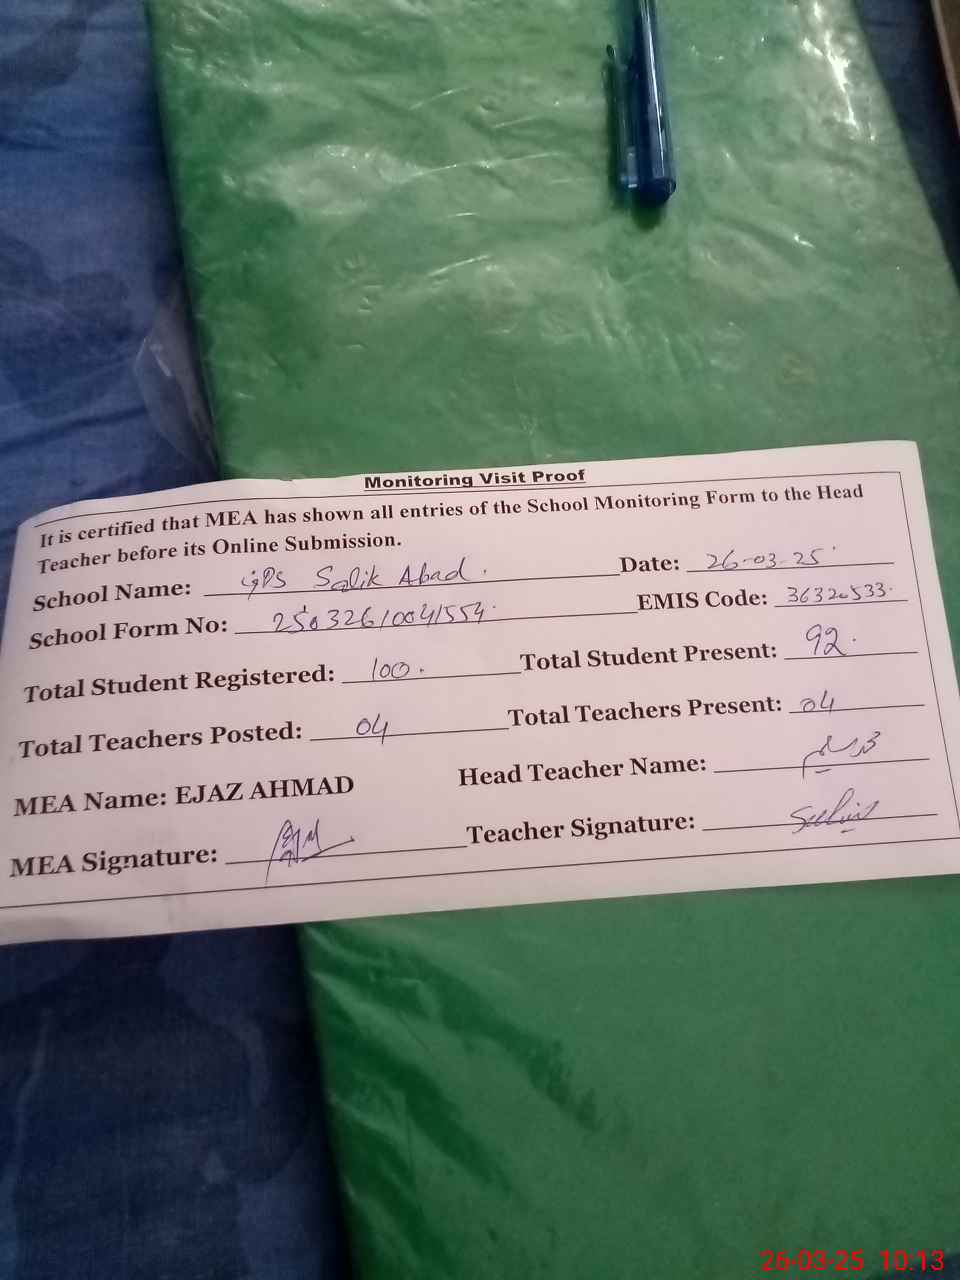 Monitoring Visit Proof
It is certified that MEA has shown all entries of the School Monitoring Form to the Head
Teacher before its Online Submission.
School Name: GPS Salik Abad. Date: 26-03-25
School Form No: EMIS Code: 36320533.
Total Student Registered: 100. Total Student Present: 92.
Total Teachers Posted: 04 Total Teachers Present: 04
MEA Name: EJAZ AHMAD Head Teacher Name:
MEA Signature: Teacher Signature:
26-03-25 10:13